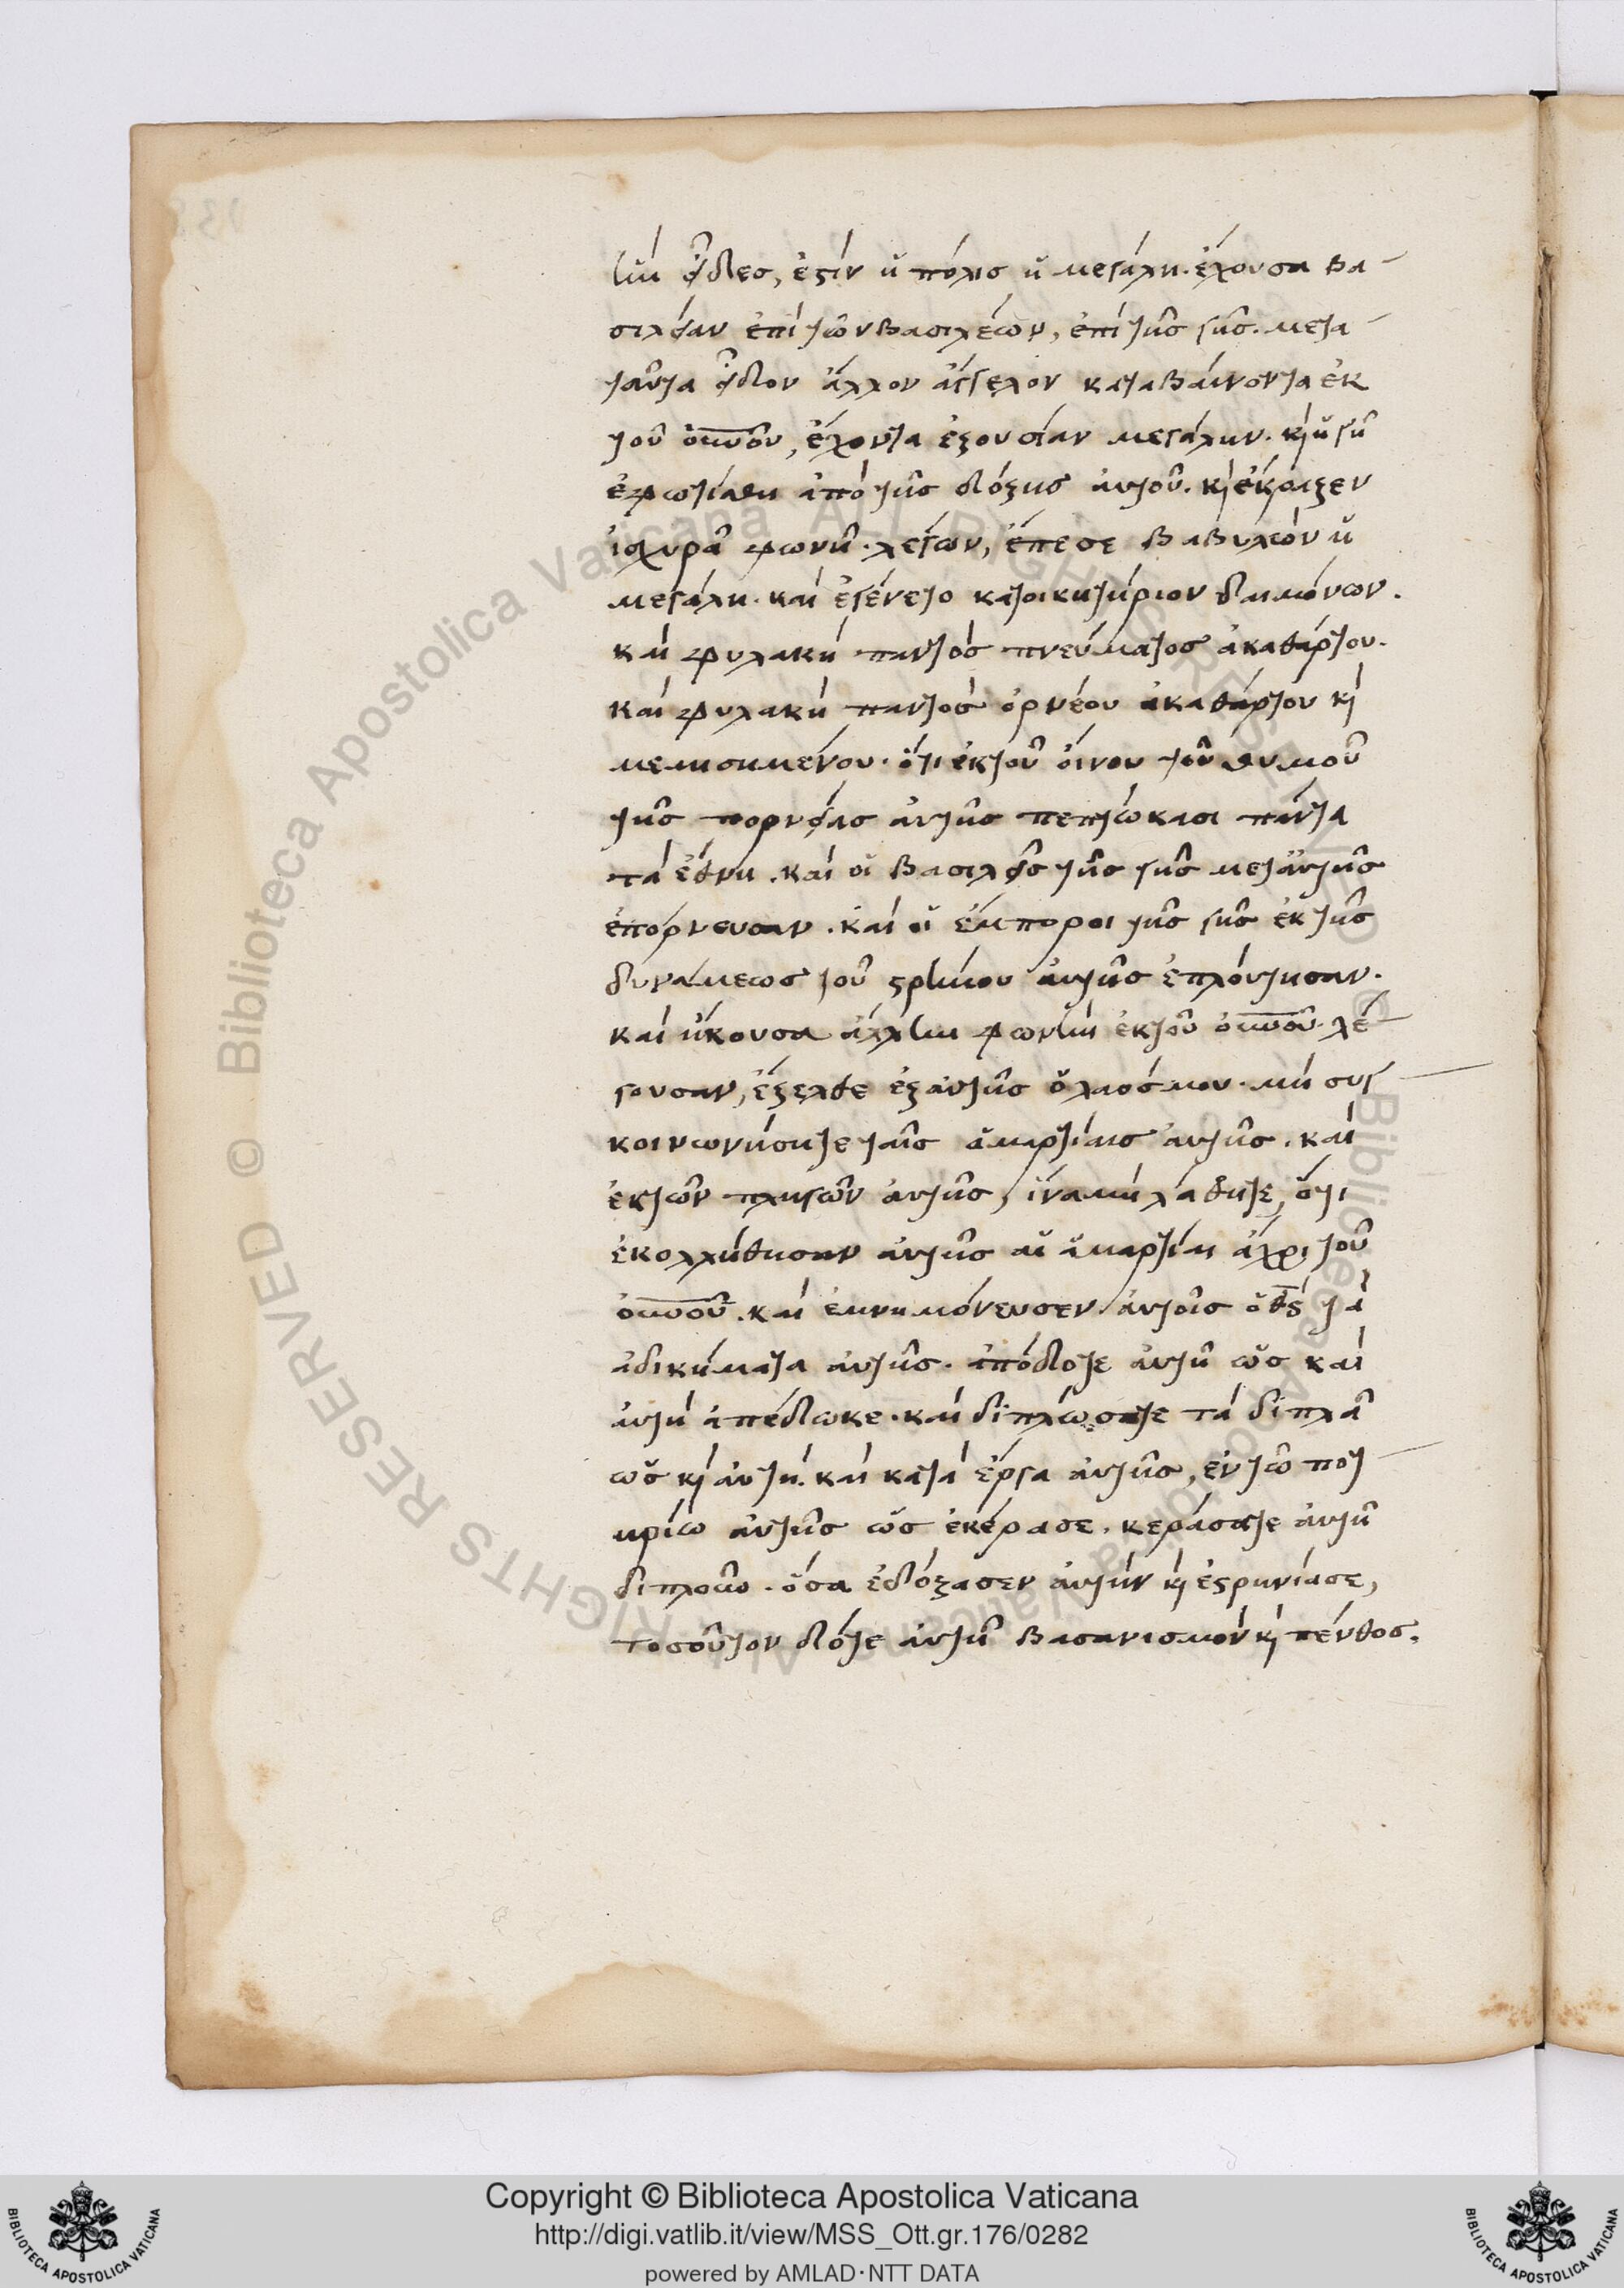 ἣν εἶδες, ἐστὶν ἡ πόλις ἡ μεγάλη. ἔχουσα βα-
σιλείαν ἐπὶ τῶν βασιλέων, ἐπὶ τῆς γῆς. μετὰ
ταῦτα εἶδον ἄλλον ἄγγελον καταβαίνοντα ἐκ
τοῦ οὐνοῦ, ἔχοντα ἐξουσίαν μεγάλην. κὶ ἡ γῆ
ἐφωτίσθη ἀπὸ τῆς δόξης αὐτοῦ. κὶ ἐκέκραξεν
ἰσχυρᾶ φωνῆ. λέγων, ἔπεσε βαβυλὼν ἡ
μεγάλη. καὶ ἐγένετο κατοικητήριον δαιμόνων.
καὶ φυλακὴ παντὸς πνεύματος ἀκαθάρτου.
καὶ φυλακὴ παντὸς ὀρνέου ἀκαθάρτου κὶ
μεμισημένου. ὅτι ἐκ τοῦ οἴνου τοῦ θυμοῦ
τῆς πορνείας αὐτῆς πεπτώκασι πάντα
τὰ ἔθνη. καὶ οἱ βασιλεῖς τῆς γῆς μετ' αὐτῆς
ἐπόρνευσαν. καὶ οἱ ἔμποροι τῆς γῆς ἐκ τῆς
δυνάμεως τοῦ στρήνου αὐτῆς ἐπλούτησαν.
καὶ ἤκουσα ἄλλην φωνὴν ἐκ τοῦ οὐνοῦ. λέ-
γουσαν, ἔξελθε ἐξ αὐτῆς ὁ λαός μου. μὴ συγ-
κοινωνήσητε ταῖς ἁμαρτίαις αὐτῆς. καὶ
ἐκ τῶν πληγῶν αὐτῆς, ἵνα μὴ λάθητε, ὅτι
ἐκολλήθησαν αὐτῆς αἱ ἁμαρτίαι ἄχρι τοῦ
οὐνοῦ. καὶ ἐμνημόνευσεν αὐτοῖς ὁ θς τὰ
ἀδικήματα αὐτῆς. ἀπόδοτε αὐτῆ ὡς καὶ
αὐτὴ ἀπέδωκε. καὶ διπλώσατε τὰ διπλᾶ
ὡς κὶ αὐτὴ. καὶ κατὰ ἔργα αὐτῆς, ἐν τῶ ποτ-
ηρίω αὐτῆς ὡς ἐκέρασε. κεράσατε αὐτῆ
διπλοῦν. ὅσα ἐδόξασεν αὐτὴν κὶ ἐστρηνίασε,
τοσοῦτον δότε αὐτῆ βασανισμὸν κὶ πένθος.
Copyright © Biblioteca Apostolica Vaticana
http://digi.vatlib.it/view/MSS_Ott.gr.176/0282
powered by AMLAD·NTT DATA